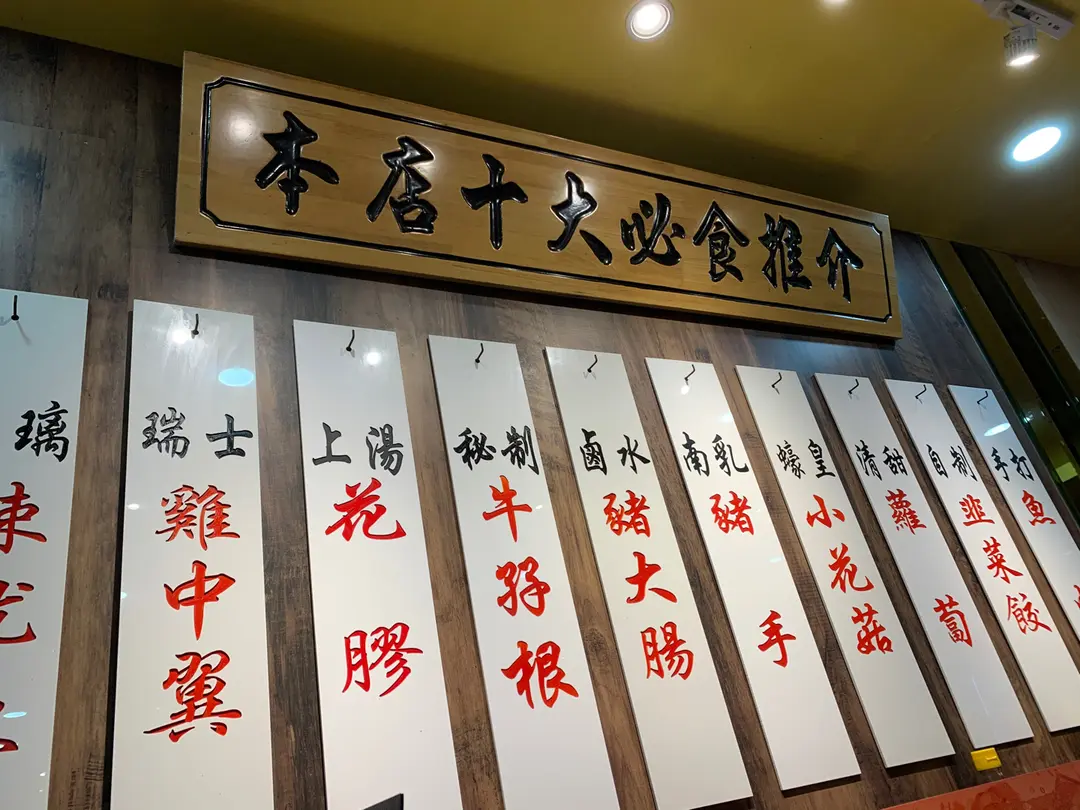 本店十大必食推介
璃
瑞士
雞中翼
上湯
花膠
秘制
牛孖根
鹵水
豬大腸
南乳
豬手
蠔皇
小花菇
清甜
蘿蔔
自制
韭菜餃
手打
魚